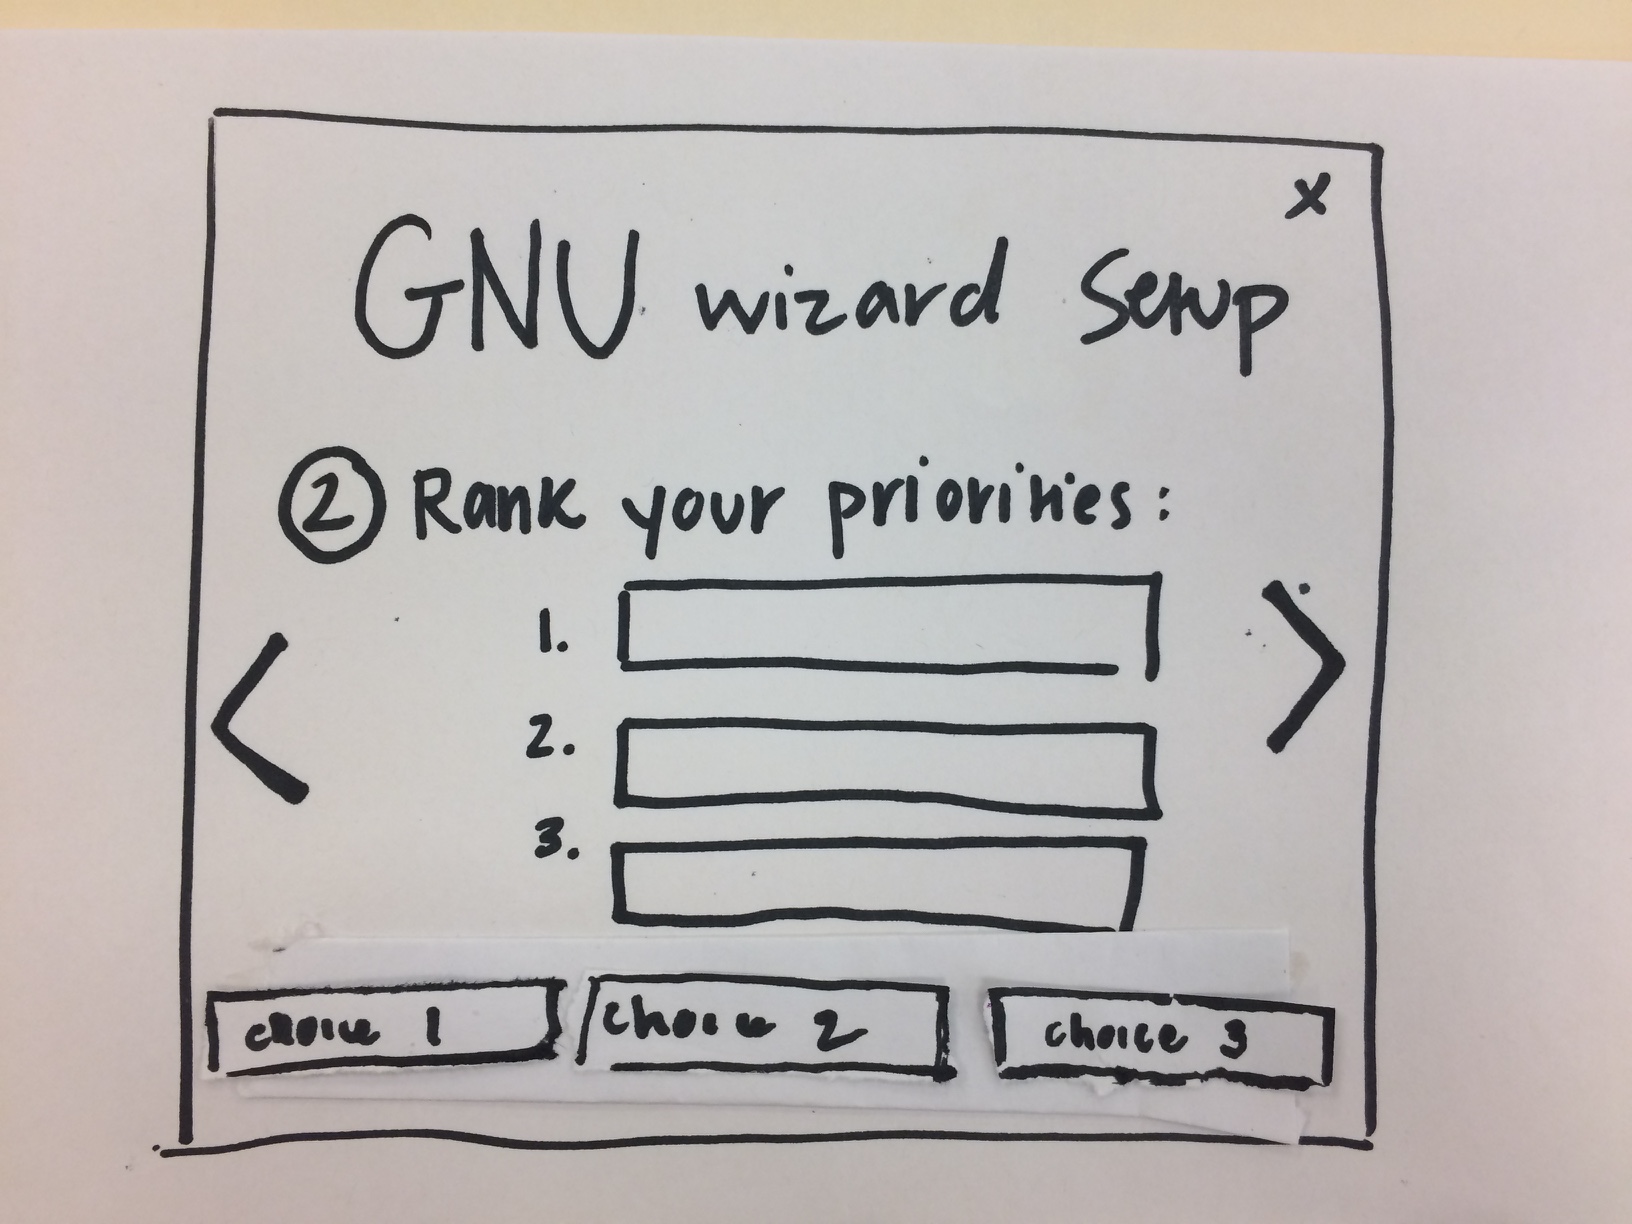 x
GNU wizard Setup
2 Rank your priorities:
1.
2.
3.
choice 1 choice 2 choice 3